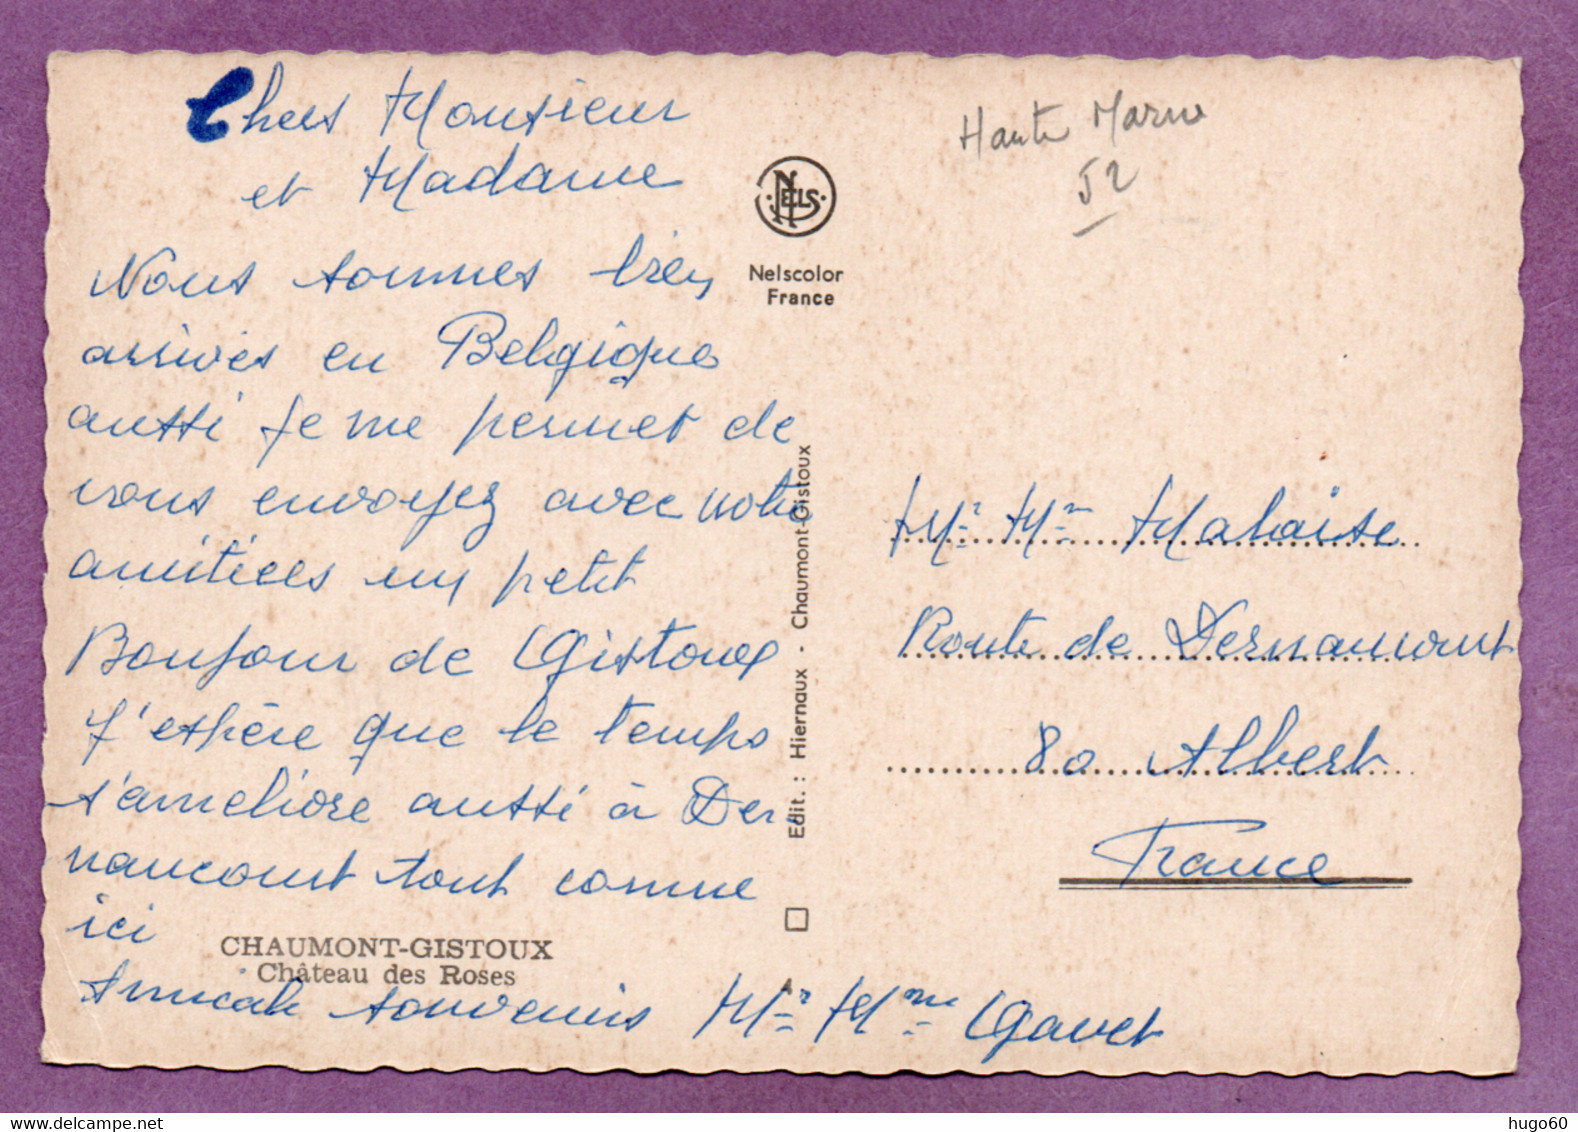 Chers Monsieur
et Madame
Nous sommes bien
arrivés en Belgique
aussi je me permet de
vous envoyez avec notre
amitiées un petit
Bonjour de Gistoux
j'espère que le temps
s'améliore aussi à Der-
nancourt tout comme
ici
CHAUMONT-GISTOUX
Château des Roses
Amicale souvenirs Mr Mme Gavet
NELS
Nelscolor
France
Edit. : Hiernaux - Chaumont-Gistoux
Haute Marne
52
Mr Mm Malaise
Route de Dernancourt
80 Albert
France
www.delcampe.net
hugo60